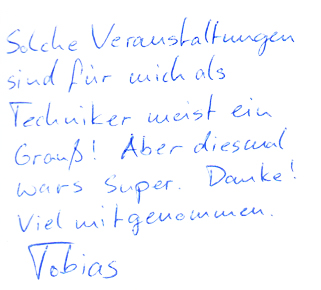 Solche Veranstaltungen
sind für mich als
Techniker meist ein
Grauß! Aber diesmal
wars super. Danke!
Viel mitgenommen.
Tobias